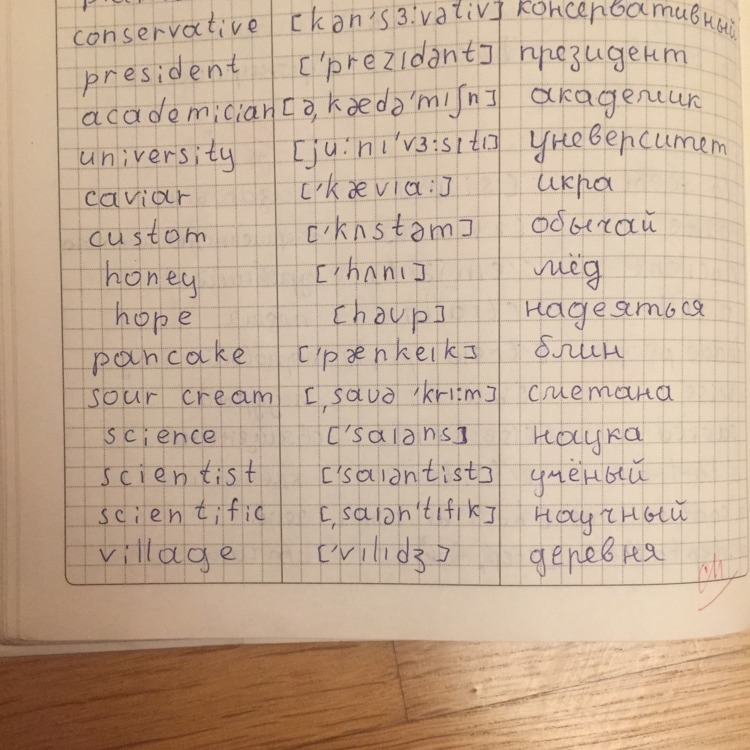 conservative [kən's3:vətiv] консервативный
president ['prezıdənt] президент
academician [ə,kædə'mıʃn] академик
university [ju:nı'v3:sıtı] уневерситет
caviar ['kævıa:] икра
custom ['kʌstəm] обычай
honey ['hʌnı] мёд
hope [həʊp] надеяться
pancake ['pænkeık] блин
sour cream [,saʊə 'krı:m] сметана
science ['saıəns] наука
scientist ['saıəntist] учёный
scientific [,saıən'tıfık] научный
village ['vılıdʒ] деревня